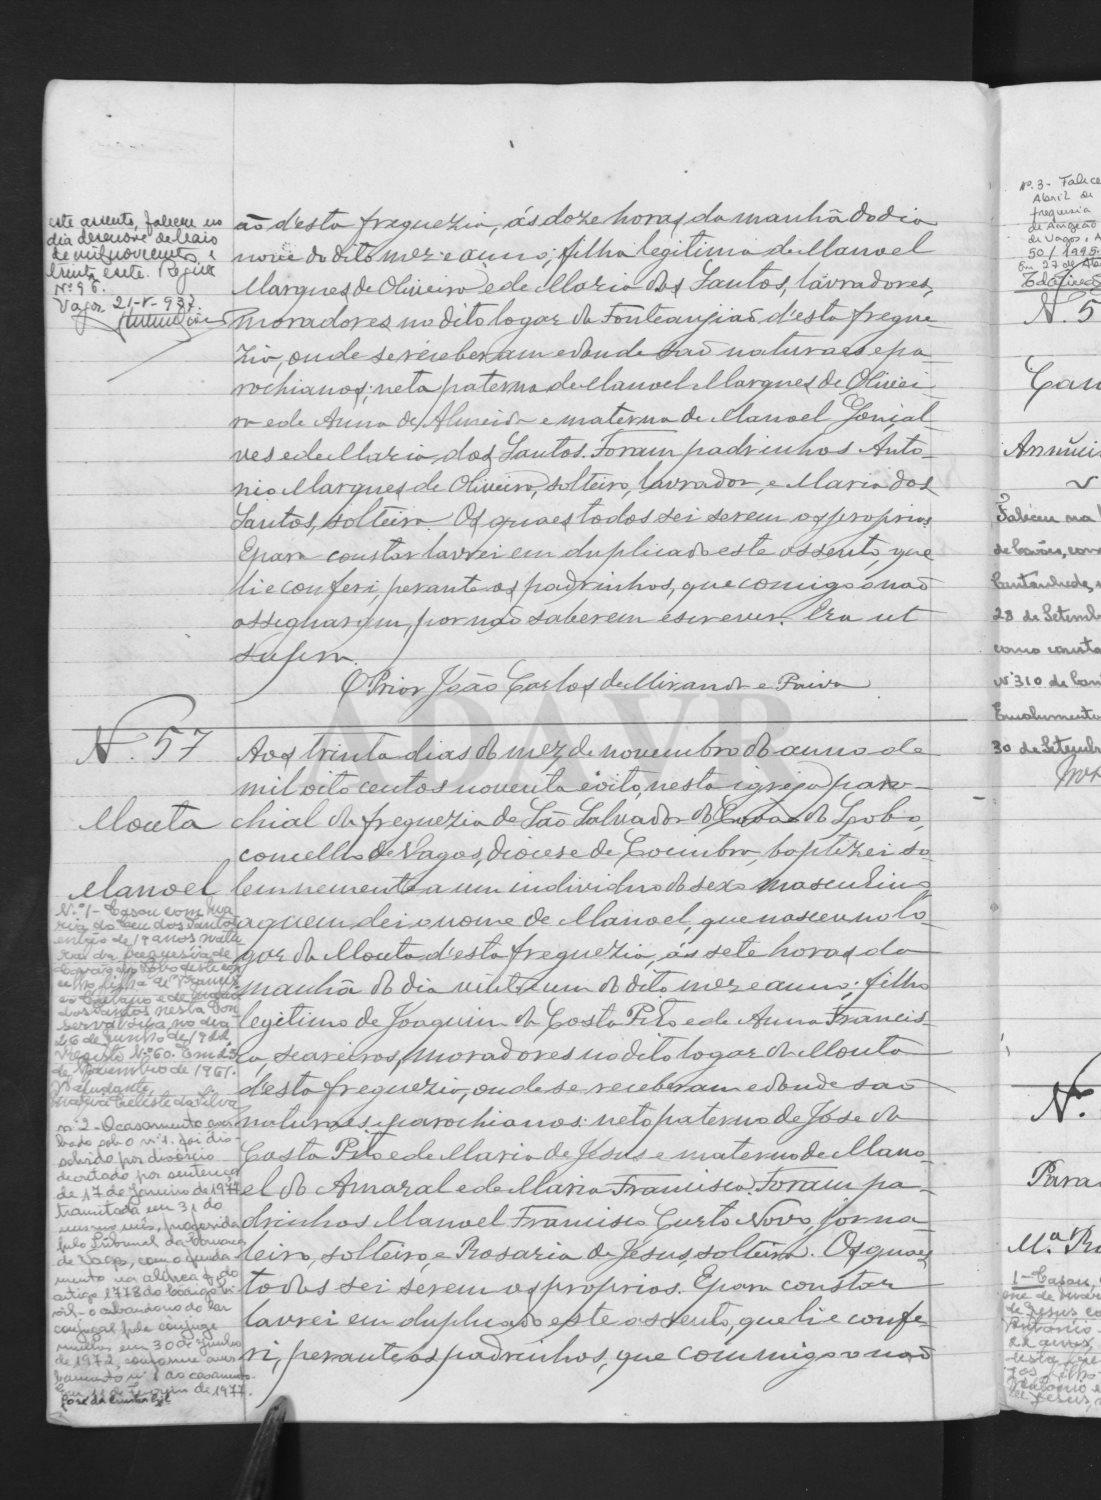 este assento, faleceu no
dia dezenove de Maio
de mil novecentos e
trinta e sete. Registo
Nº 96.
Vagos 21-V-937.
ão d'esta freguezia, ás doze horas da manhã do dia
nove do dito mez e anno; filha legitima de Manoel
Marques de Oliveira e de Maria dos Santos, lavradores,
moradores no dito logar da Fonteangião d'esta fregue-
zia, onde se receberam e donde são naturaes e pa
rochianos; neta paterna de Manoel Marques de Olivei
ra e de Anna de Almeida e materna de Manoel Gonçal-
ves e de Maria dos Santos. Foram padrinhos Anto-
nio Marques de Oliveira, solteiro, lavrador, e Maria dos
Santos, solteira. Os quaes todos sei serem os proprios.
E para constar lavrei em duplicado este assento, que
li e conferi, perante os padrinhos, que comigo o não
assignaram, por não saberem escrever. Era ut
supra.
O Prior João Carlos de Miranda e Paiva
N.º 57
Mouta
Manoel
Aos trinta dias do mez de novembro do anno de
mil oito centos noventa e oito, nesta igreja paro-
chial da freguezia de São Salvador de Covão do Lobo,
concelho de Vagos, diocese de Coimbra, baptizei so-
lemnemente a um individuo do sexo masculino
a quem dei o nome de Manoel, que nasceu no lo-
gar da Mouta d'esta freguezia, ás sete horas da
manhã do dia vinte um do dito mez e anno; filho
legitimo de Joaquim da Costa Pito e de Anna Francis-
ca, seareiros, moradores no dito logar da Mouta
d'esta freguezia, onde se receberam e donde são
naturaes e parochianos: neto paterno de José da
Costa Pito e de Maria de Jesus e materno de Mano-
el do Amaral e de Maria Francisca. Foram pa-
drinhos Manoel Francisco Curto Novo, jorna-
leiro, solteiro, e Rosaria de Jesus, solteira. Os quaes
todos sei serem os proprios. E para constar
lavrei em duplicado este assento, que li e confe-
ri, perante os padrinhos, que commigo o não
N.º 1 - Casou com Ma
ria do Céu dos Santos
então de 19 anos natu
ral da freguesia de
Covão do Lobo deste con
celho filha de Francis
co Caetano e de
dos Santos nesta Con
servatória no dia
26 de Junho de
registo Nº 60. Em 23
de Novembro de 1961.
O ajudante,
Maria Celeste da Silva
nº 2 - O casamento aver
bado sob o nº 1 foi dis-
solvido por divórcio
decretado por sentença
de 17 de Janeiro de 1977
transitada em 31 do
mesmo mês, proferida
pelo Tribunal da Comarca
de Vagos, com o funda
mento na alínea f) do
artigo 1778 do Código Ci
vil - o abandono do lar
conjugal pelo cônjuge
em 30 de Junho
de 1972, conforme aver
bamento nº 1 ao casamento.
de 1977.
Nº. 3 - Falece
Abril de
freguesia
de Angeão
de Vagos. A
50/1995.
Em 27 de Abr
N. 5
Annuci
Faleceu na
de Covões, con
Cantanhede,
28 de Setemb
como consta
Nº 310 de
Emolumento
30 de Setemb
N.
Para
M.ª Ro
1 - Casou,
de Jesus co
António
22 anos,
desta fre
gos, filho
António e
de Jesus,
ADAVR